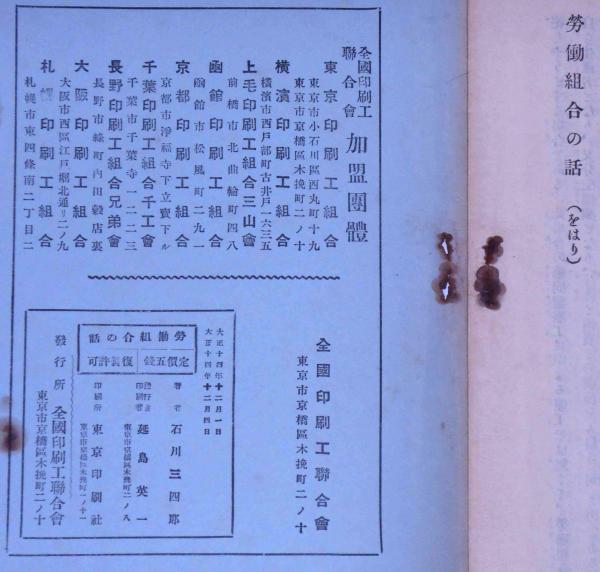 勞働組合の話（をはり）
全國印刷工
聯合會
加盟團體
東京印刷工組合
東京市小石川區西丸町十九
東京市京橋區木挽町二ノ十
横濱印刷工組合
横濱市西戸部町古井戸一六三五
上毛印刷工組合三山會
前橋市北曲輪町四八
函館印刷工組合
函館市松風町二九一
京都印刷工組合
京都市淨福寺下立賣下ル
千葉印刷工組合千工會
千葉市千葉寺一二二三
長野印刷工組合兄弟會
長野市緑町内田穀店裏
大阪印刷工組合
大阪市西區江戸堀北通リ二ノ九
札幌印刷工組合
札幌市東四條南二丁目二
全國印刷工聯合會
東京市京橋區木挽町二ノ十
大正十四年十二月一日
大正十四年十二月四日
勞働組合の話
定價五錢
復製許可
著者
石川三四郎
發行兼
印刷者
延島英一
東京市京橋區木挽町二ノ八
印刷所
東京印刷社
東京市京橋區木挽町一ノ十一
發行所
全國印刷工聯合會
東京市京橋區木挽町二ノ十